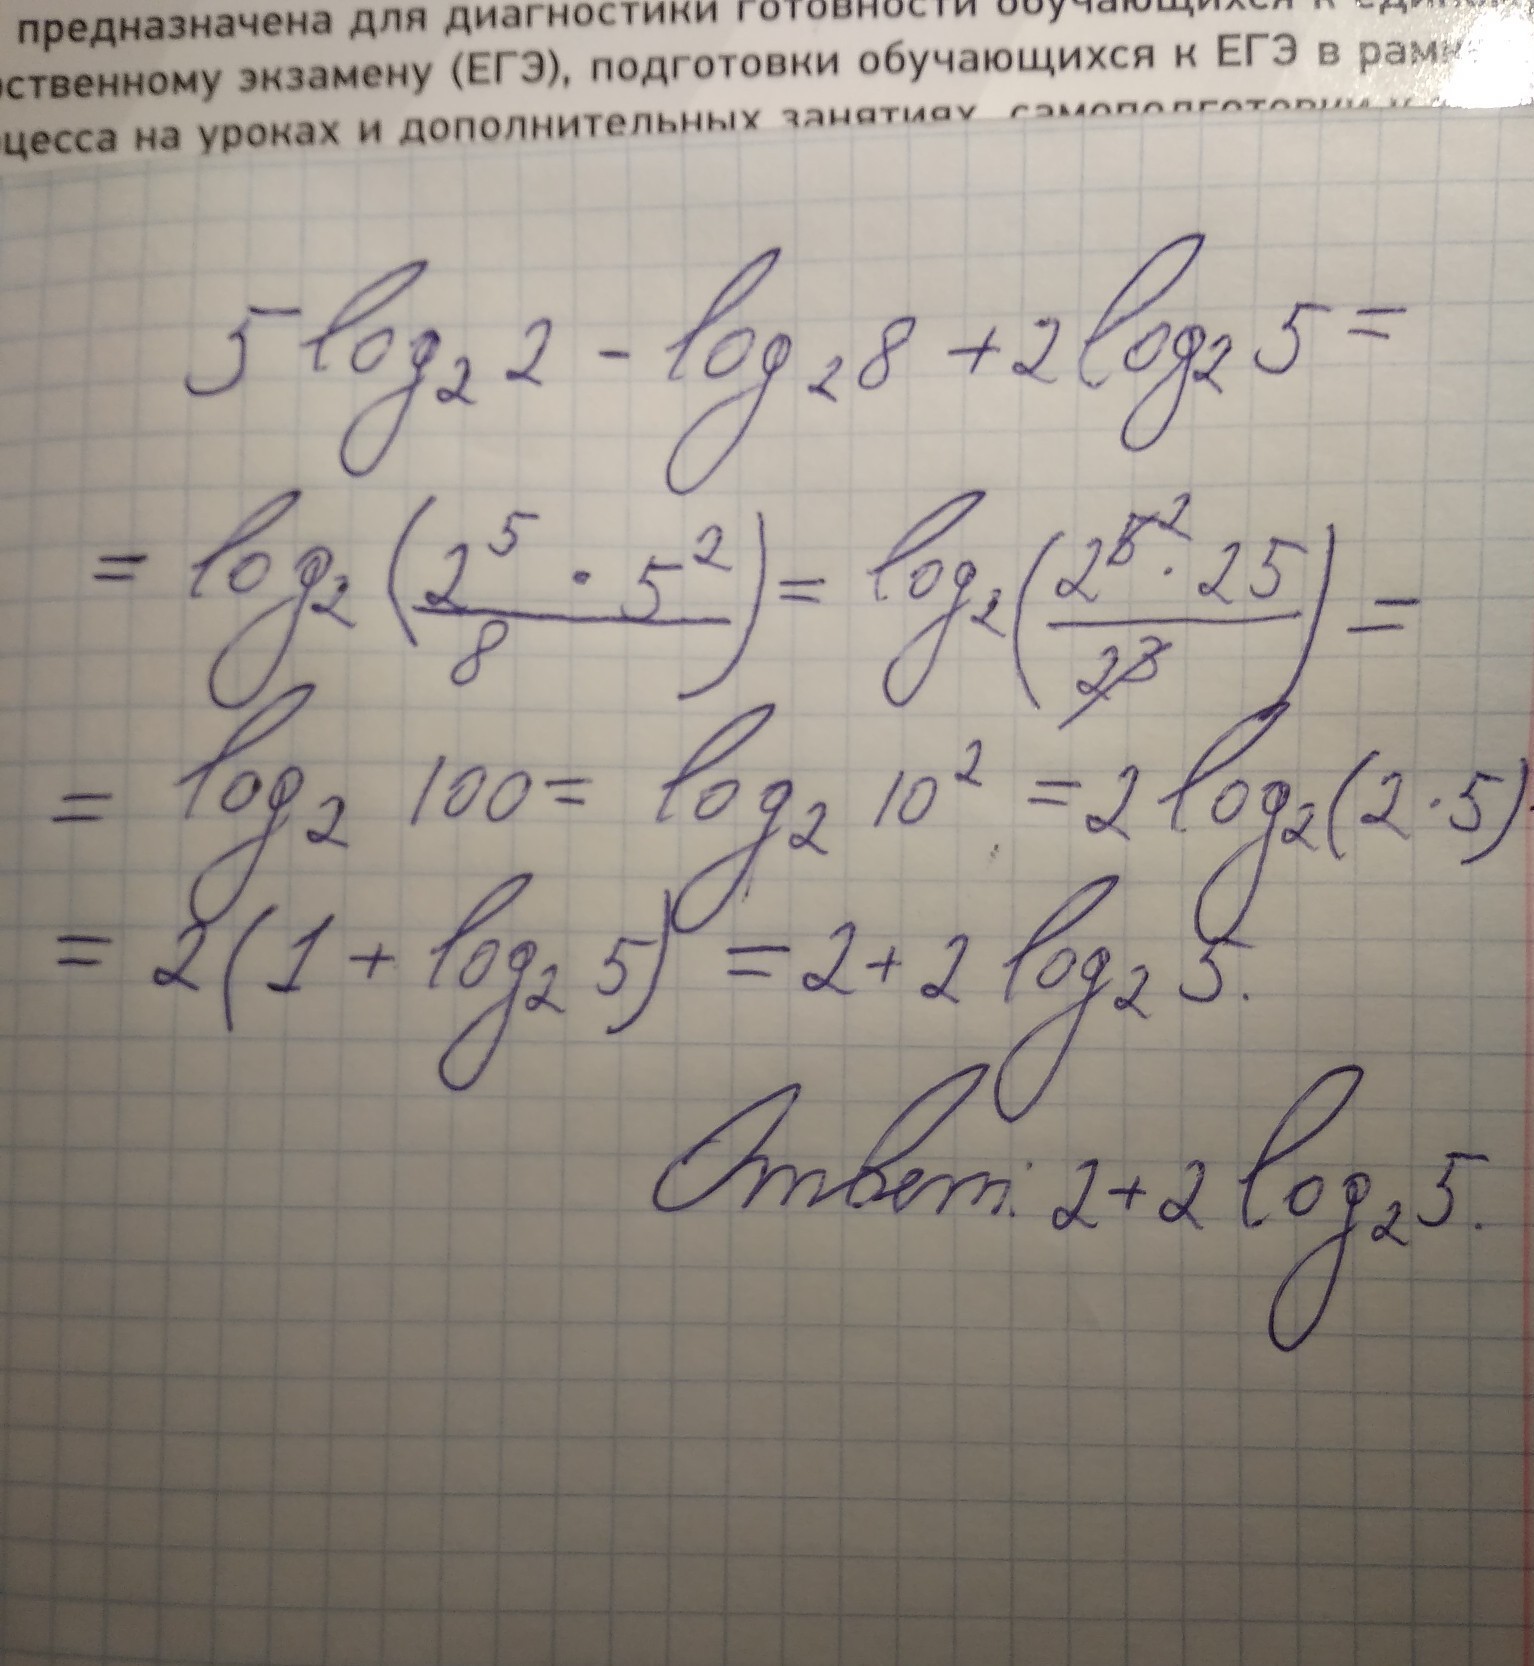 предназначена для диагностики готовности обучающихся к
рственному экзамену (ЕГЭ), подготовки обучающихся к ЕГЭ в
цесса на уроках и дополнительных занятиях, самоподготовки к
5 log₂ 2 - log₂ 8 + 2 log₂ 5 =
= log₂ (2⁵ · 5² / 8) = log₂ (2² · 25 / 2³) =
= log₂ 100 = log₂ 10² = 2 log₂ (2 · 5)
= 2 (1 + log₂ 5) = 2 + 2 log₂ 5.
Ответ: 2 + 2 log₂ 5.